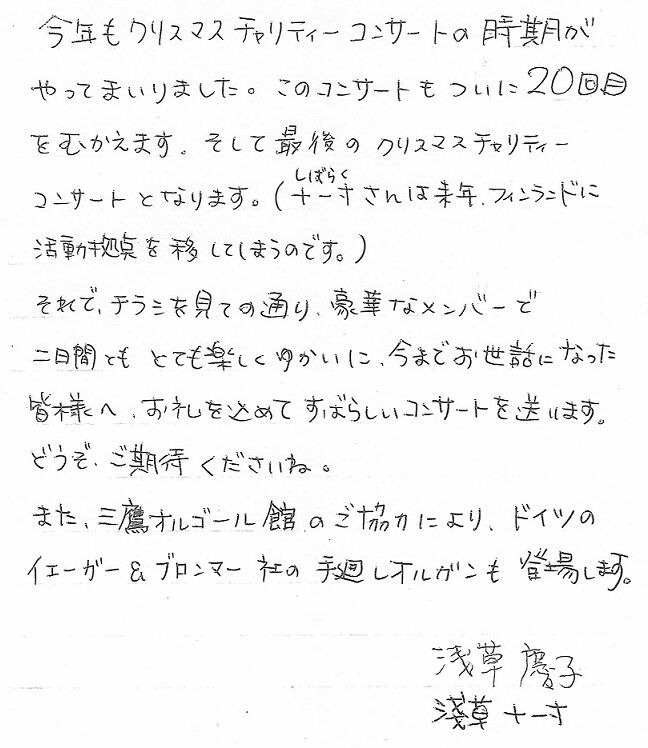 今年もクリスマスチャリティーコンサートの時期が
やってまいりました。このコンサートもついに20回目
をむかえます。そして最後のクリスマスチャリティー
コンサートとなります。(十一寸さんは来年、フィンランドに
しばらく
活動拠点を移してしまうのです。)
それで、チラシを見ての通り、豪華なメンバーで
二日間ともとても楽しくゆかいに、今までお世話になった
皆様へ、お礼を込めてすばらしいコンサートを送ります。
どうぞ、ご期待くださいね。
また、三鷹オルゴール館のご協力により、ドイツの
イエーガー&ブロンマー社の手廻しオルガンも登場します。
浅草慶子
淺草十一寸